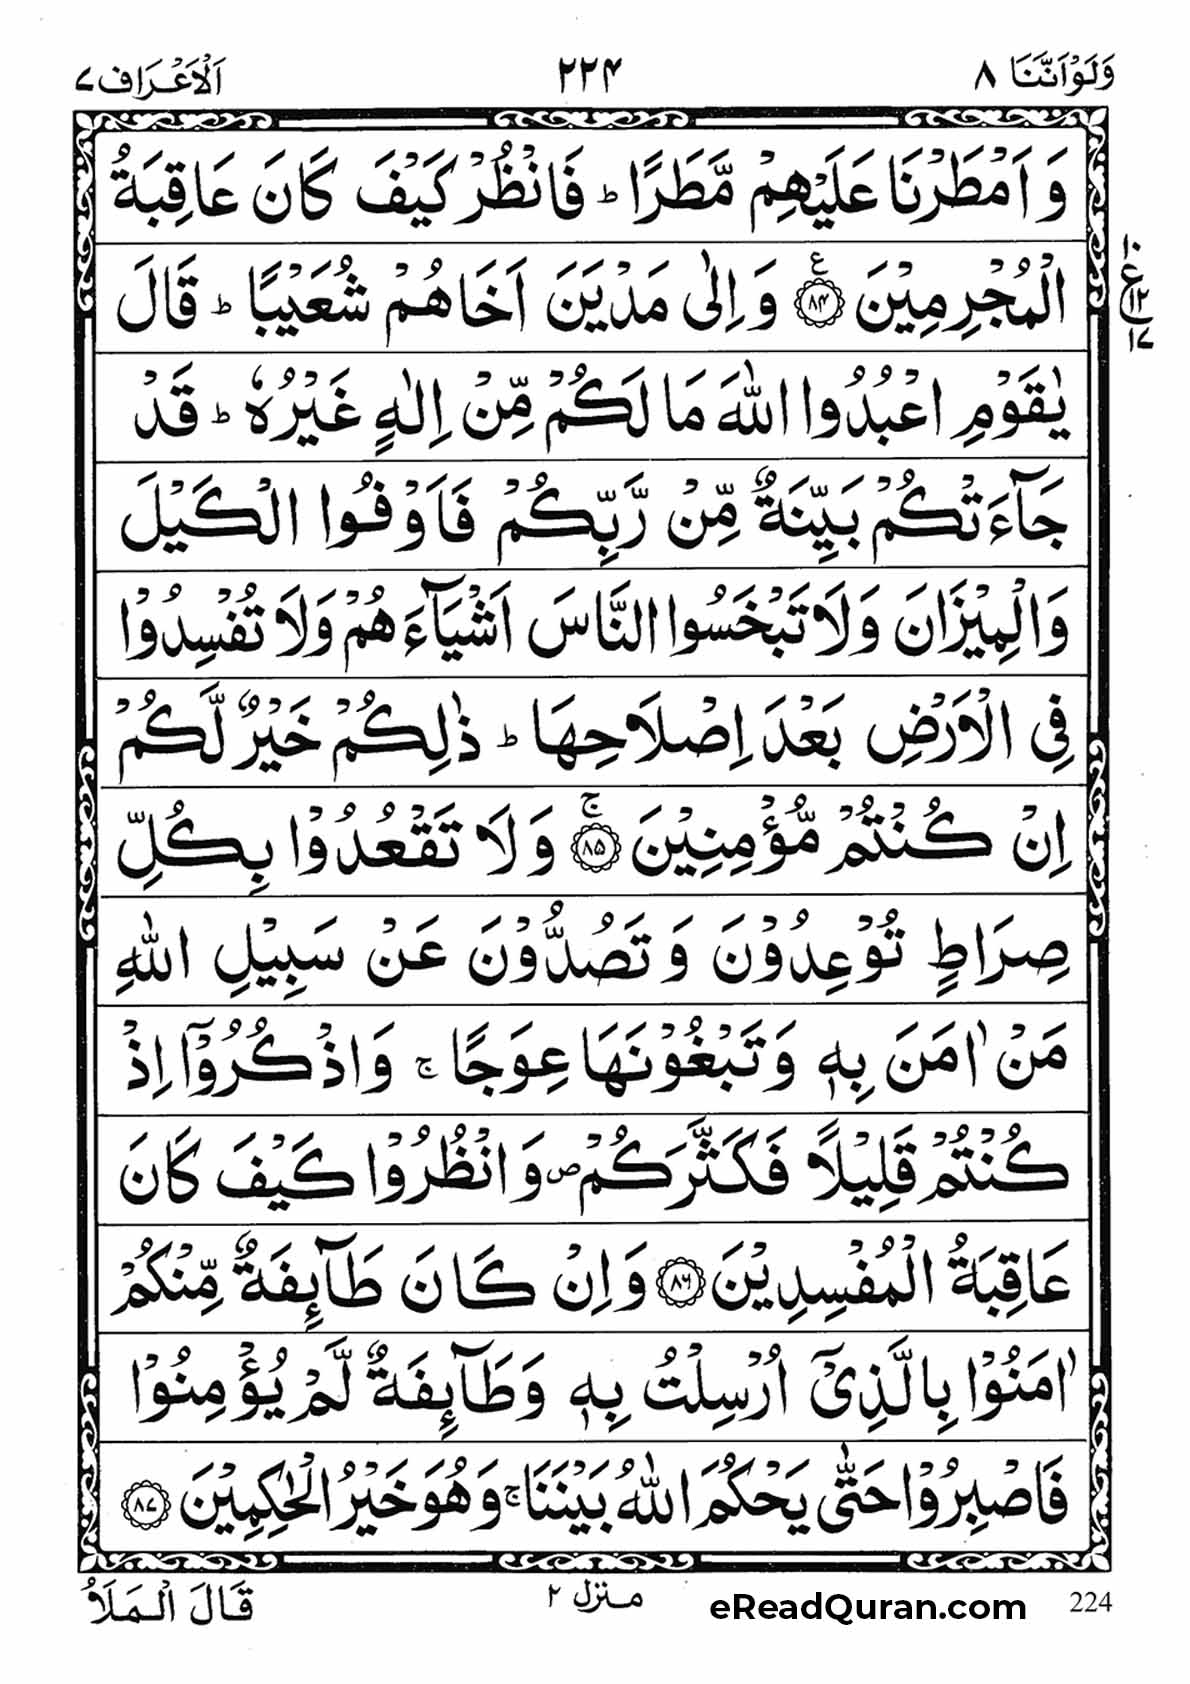 وَلَوْاَنَّنَا ٨ ٢٢۴ اَلْاَعْرَاف ٧
وَ اَمْطَرْنَا عَلَيْهِمْ مَّطَرًا ؕ فَانْظُرْ كَيْفَ كَانَ عَاقِبَةُ
الْمُجْرِمِيْنَ ﴿۸۴﴾ ع وَ اِلٰى مَدْيَنَ اَخَاهُمْ شُعَيْبًا ؕ قَالَ
١٠
ع ١٢
١٧
يٰقَوْمِ اعْبُدُوا اللّٰهَ مَا لَكُمْ مِّنْ اِلٰهٍ غَيْرُهٗ ؕ قَدْ
جَآءَتْكُمْ بَيِّنَةٌ مِّنْ رَّبِّكُمْ فَاَوْفُوا الْكَيْلَ
وَالْمِيْزَانَ وَلَا تَبْخَسُوا النَّاسَ اَشْيَآءَهُمْ وَلَا تُفْسِدُوْا
فِي الْاَرْضِ بَعْدَ اِصْلَاحِهَا ؕ ذٰلِكُمْ خَيْرٌ لَّكُمْ
اِنْ كُنْتُمْ مُّؤْمِنِيْنَ ۚ﴿۸۵﴾ وَلَا تَقْعُدُوْا بِكُلِّ
صِرَاطٍ تُوْعِدُوْنَ وَ تَصُدُّوْنَ عَنْ سَبِيْلِ اللّٰهِ
مَنْ اٰمَنَ بِهٖ وَ تَبْغُوْنَهَا عِوَجًا ۚ وَ اذْكُرُوْۤا اِذْ
كُنْتُمْ قَلِيْلًا فَكَثَّرَكُمْ ۪ وَ انْظُرُوْا كَيْفَ كَانَ
عَاقِبَةُ الْمُفْسِدِيْنَ ﴿۸۶﴾ وَ اِنْ كَانَ طَآئِفَةٌ مِّنْكُمْ
اٰمَنُوْا بِالَّذِيْۤ اُرْسِلْتُ بِهٖ وَ طَآئِفَةٌ لَّمْ يُؤْمِنُوْا
فَاصْبِرُوْا حَتّٰى يَحْكُمَ اللّٰهُ بَيْنَنَا ۚ وَ هُوَ خَيْرُ الْحٰكِمِيْنَ ﴿۸۷﴾
224 eReadQuran.com منزل ٢ قَالَ الْمَلَاُ